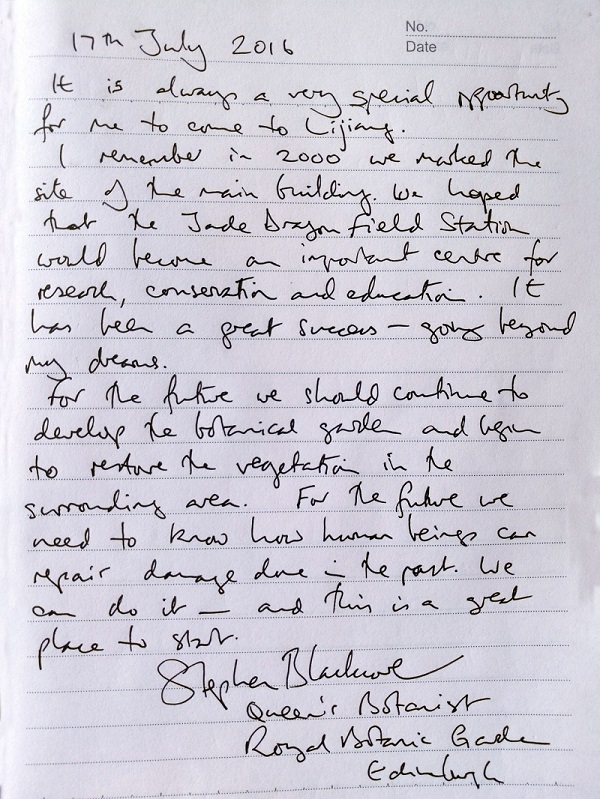 No.
17th July 2016
Date
It is always a very special opportunity
for me to come to Lijiang.
I remember in 2000 we marked the
site of the main building. We hoped
that the Jade Dragon Field Station
would become an important centre for
research, conservation and education. It
has been a great success – going beyond
my dreams.
For the future we should continue to
develop the botanical garden and begin
to restore the vegetation in the
surrounding area. For the future we
need to know how human beings can
repair damage done in the past. We
can do it – and this is a great
place to start.
Stephen Blackmore
Queen's Botanist
Royal Botanic Garden
Edinburgh